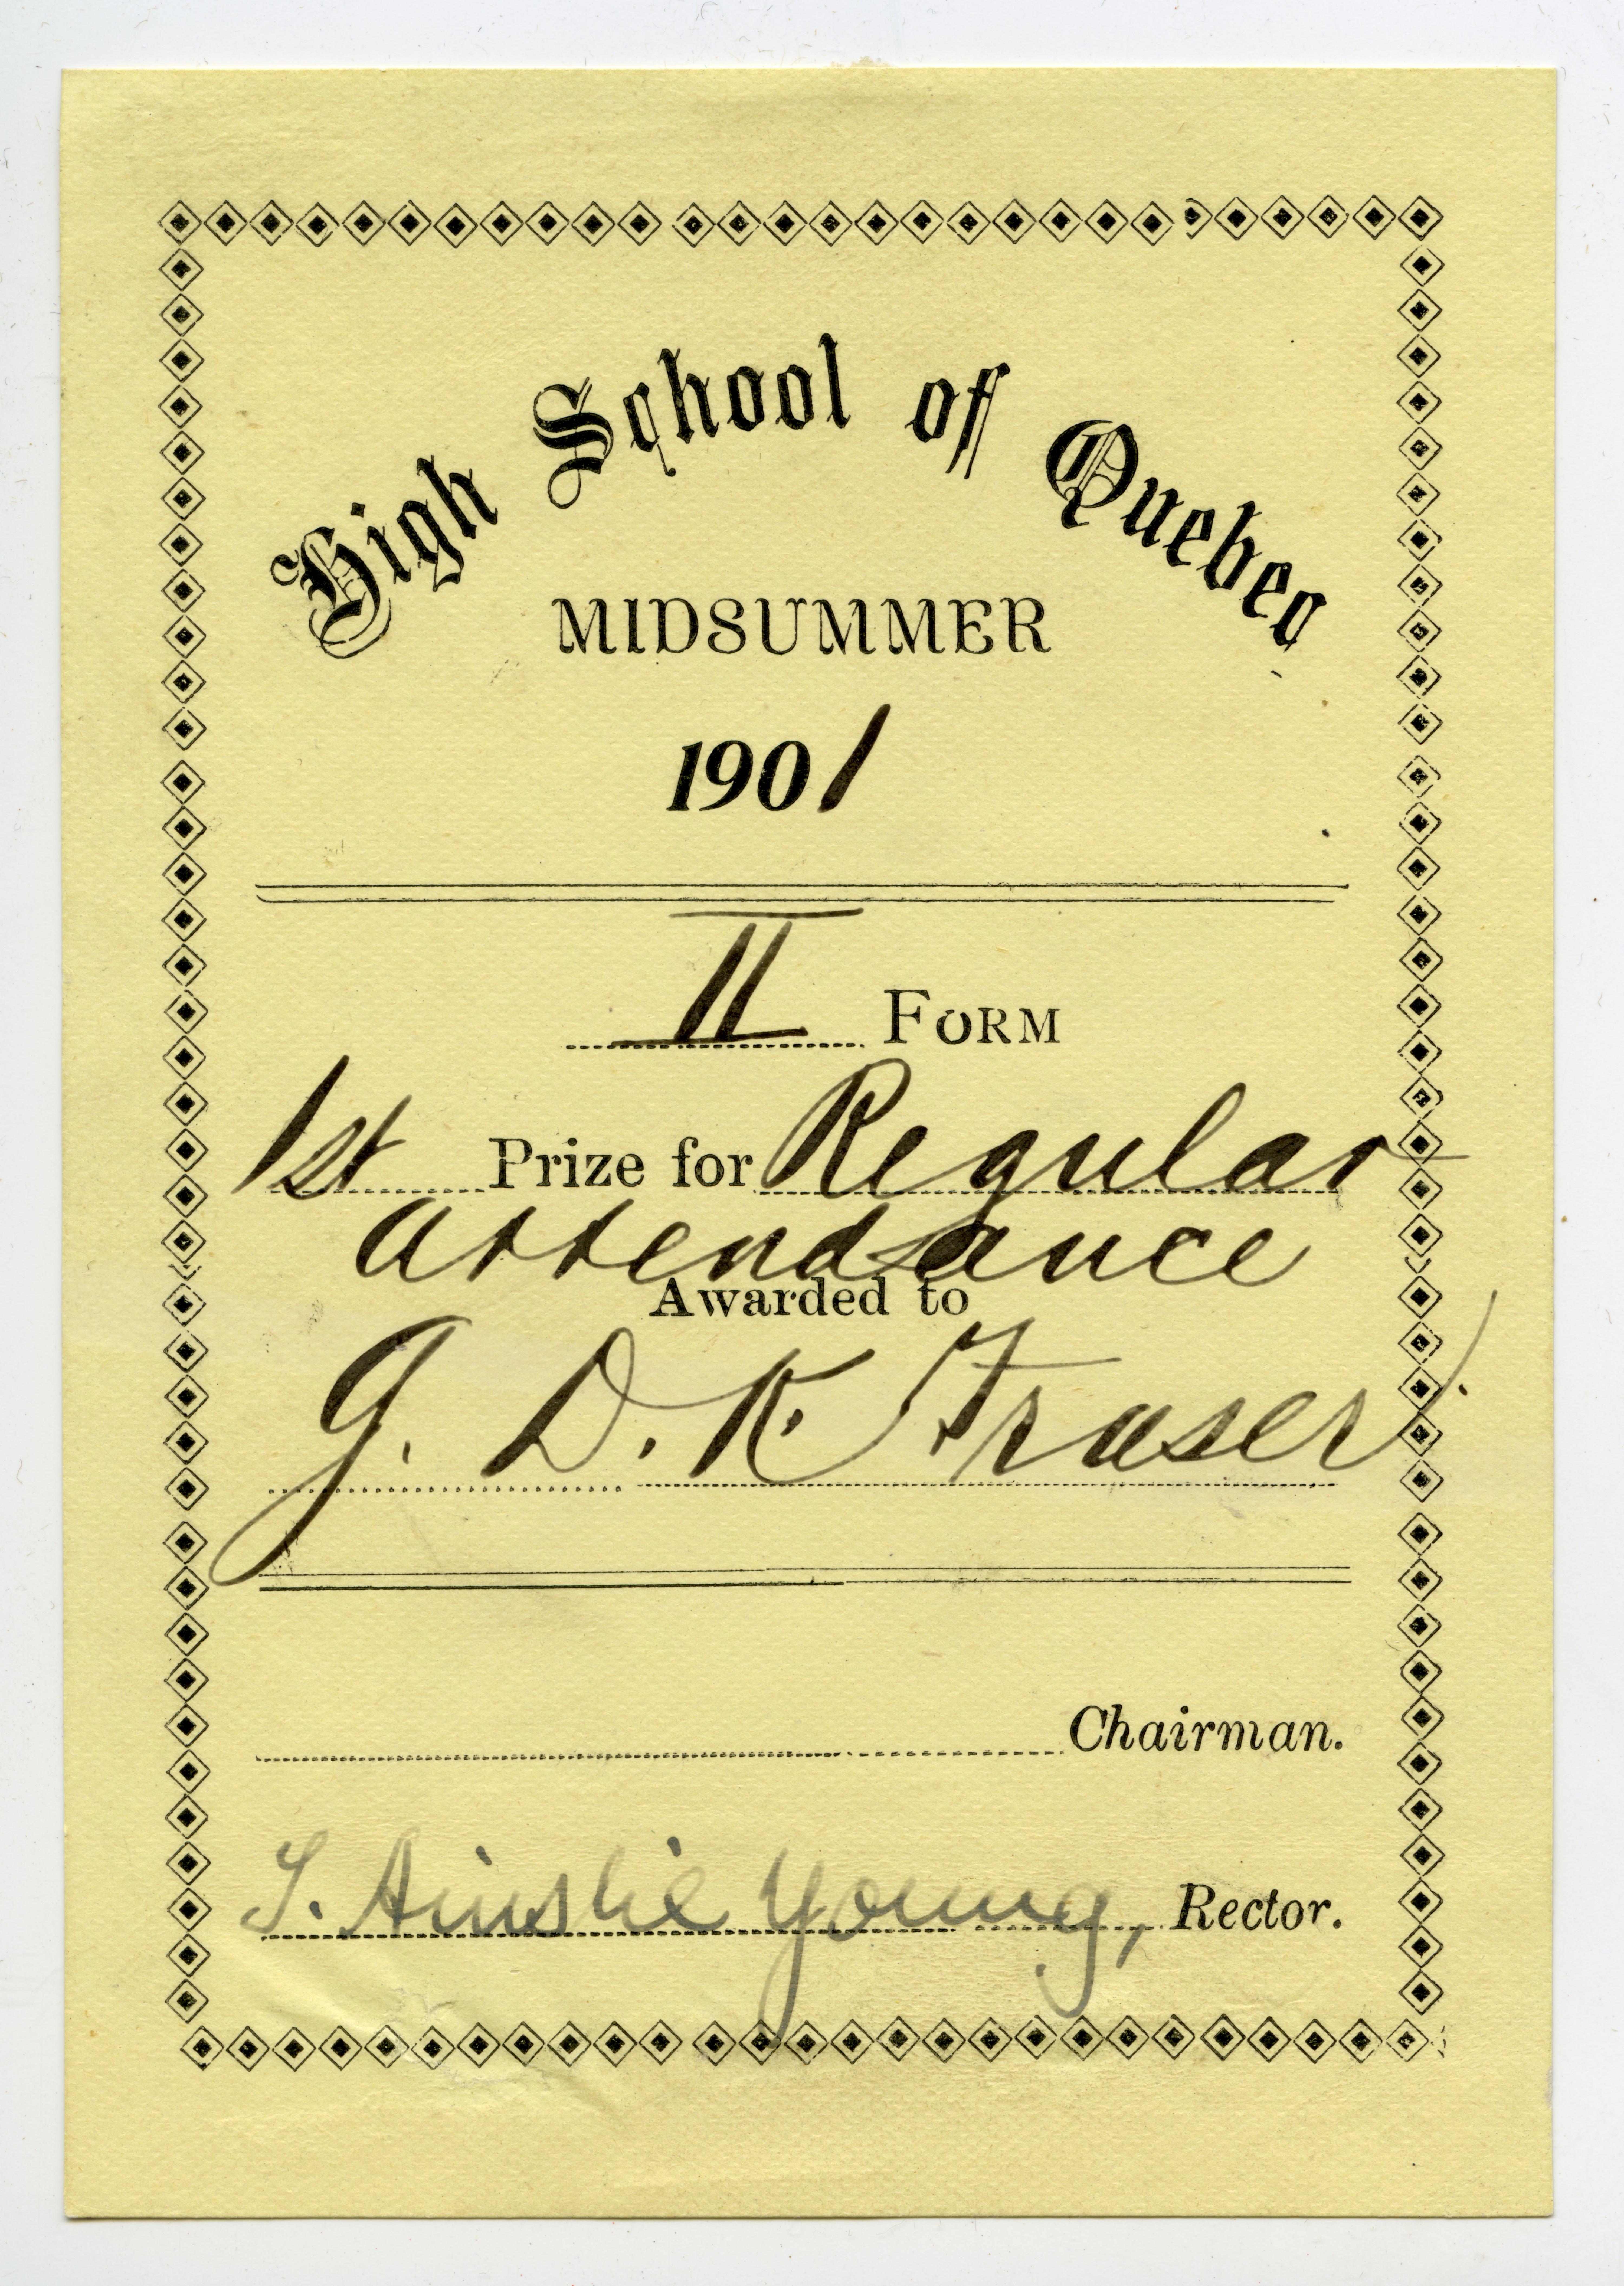 High School of Quebec
MIDSUMMER
1901
II FORM
1st Prize for Regular
attendance
Awarded to
G. D. K. Fraser.
Chairman.
T. Ainslie Young, Rector.